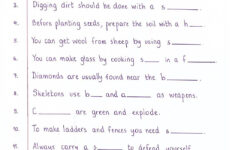 3. Digging dirt should be done with a s______.
4. Before planting seeds, prepare the soil with a h______.
5. You can get wool from sheep by using s______.
6. You can make glass by cooking s____ in a f______.
7. Diamonds are usually found near the b______.
8. Skeletons use b____ and a______ as weapons.
9. C______ are green and explode.
10. To make ladders and fences you need s______.
11. Always carry a s______ to defend yourself.